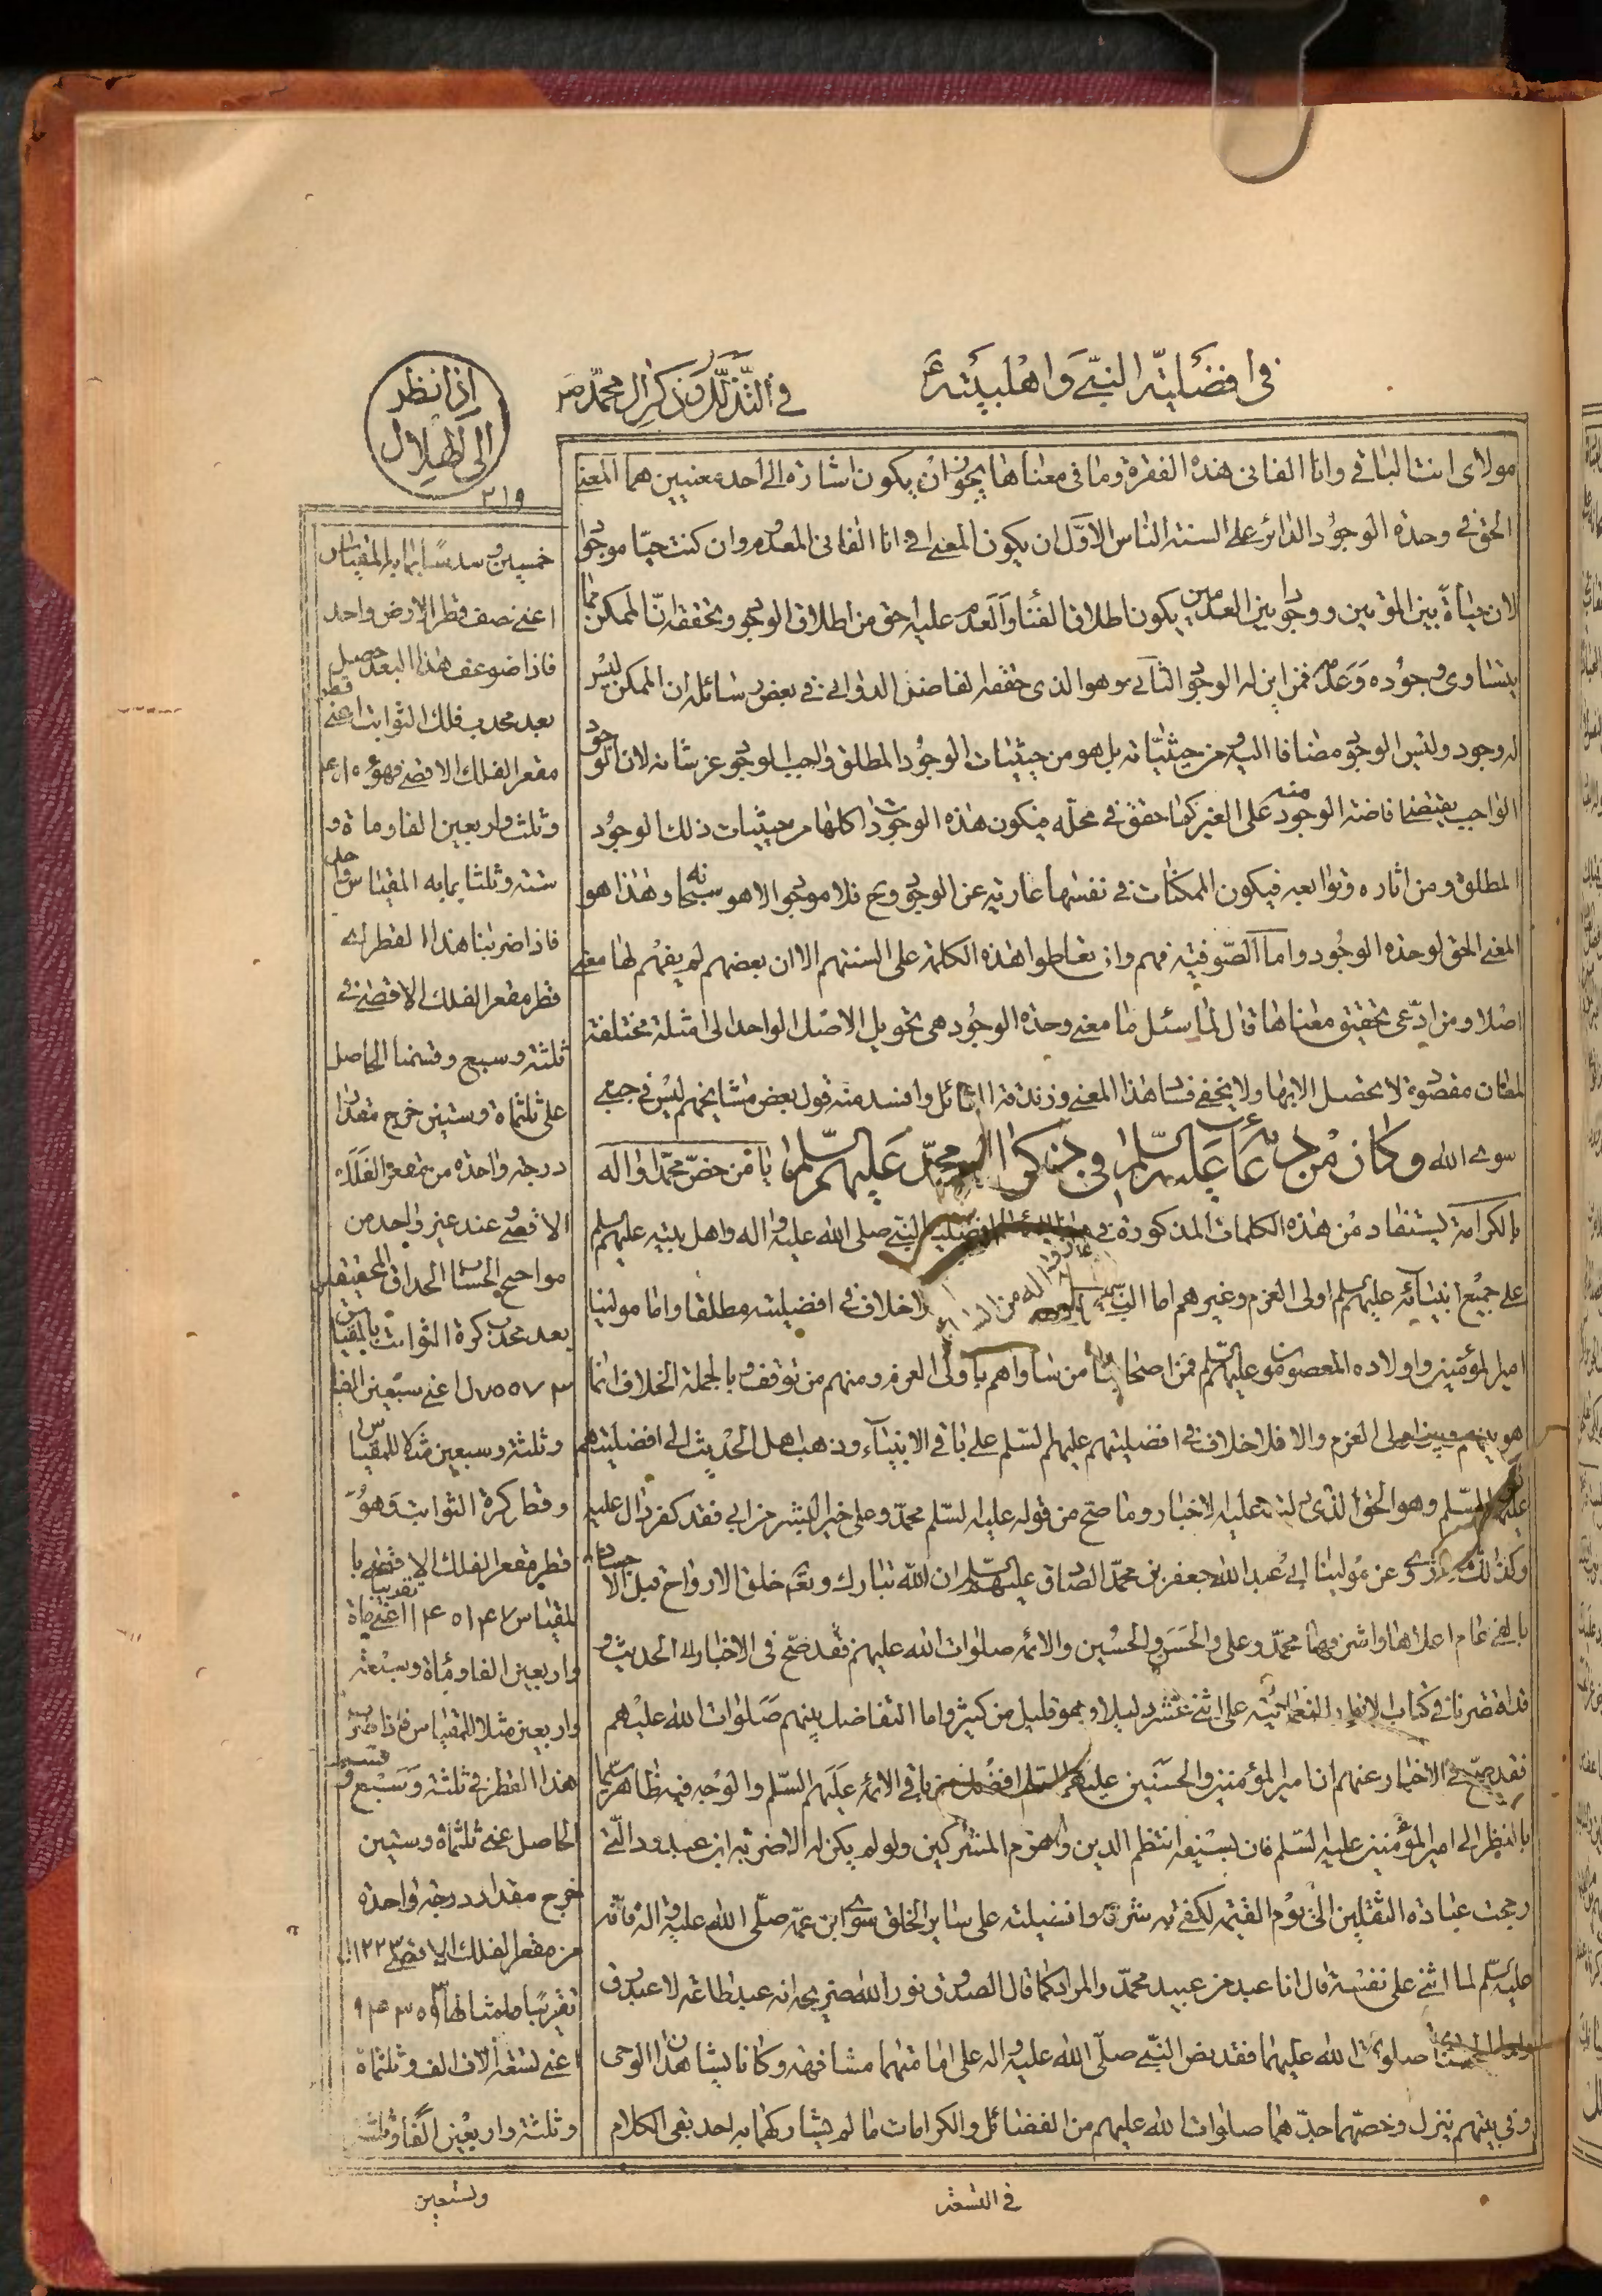 في افضلية النبي واهلبيته ع
في التذلل وذكر ال محمد ص
اذا نظر
الى الهلال
٢١٩
مولاى انت الباقي وانا الفاني هذه الفقرة وما في معناها يجوز ان يكون اشارة الى احد معنيين هما المعنى
الحق في وحدة الوجود الدائر على السنة الناس الاول ان يكون المعنى في انا الفاني المعدوم وان كنت حيا موجودا
لان حياة بين الموتين ووجودا بين العدمين يكون اطلاق الفناء والعدم عليه احق من اطلاق الوجود وتحققه ان الممكن مما
يتساوى وجوده وعدمه فمن اين له الوجود الثاني وهو الذى حققه الفاضل الدواني في بعض رسائله ان الممكن ليس
له وجود وليس الوجود مضافا اليه من حيثياته بل هو من حيثيات الوجود المطلق والواجب الوجود عز شانه لان الوجود
الواجب يقتضي افاضة الوجود منه على الغير كما حقق في محله فيكون هذه الوجودات كلها من حيثيات ذلك الوجود
المطلق ومن اثاره وتوابعه فيكون الممكنات في نفسها عارية عن الوجود وح فلا موجود الا هو سبحانه وهذا هو
المعنى الحق لوحدة الوجود واما الصوفية فهم وان تعاطوا هذه الكلمة على السنتهم الا ان بعضهم لم يفهم لها معنى
اصلا ومن ادعى تحقيق معناها قال لما سئل ما معنى وحدة الوجود هي تحويل الاصل الواحد الى امثلة مختلفة
لمعان مقصودة لا يحصل الا بها ولا يخفى فساد هذا المعنى وزندقة القائل وافسد منه قول بعض مشايخهم ليس في جبتي
سوى الله وكان من دعائه عليه السلم في ذكر ال محمد عليهم السلم يا من خص محمدا واله
بالكرامة يستفاد من هذه الكلمات المذكورة في افضلية النبي صلى الله عليه واله واهل بيته عليهم السلم
على جميع انبيائه عليهم السلم اولى العزم وغيرهم اما النبي خلاف في افضليته مطلقا واما مولينا
امير المؤمنين واولاده المعصومون عليهم السلم فمن اصحابنا من ساواهم باولى العزم ومنهم من توقف وبالجملة الخلاف انما
هو بينهم وبين اولى العزم والا فلا خلاف في افضليتهم عليهم السلم على باقي الانبياء وذهب اهل الحديث الى افضليتهم
عليهم السلم وهو الحق الذى دلت عليه الاخبار وما صح من قوله عليه السلم محمد وعلى خير البشر من ابى فقد كفر دال عليه
وكذلك عن مولينا ابى عبد الله جعفر بن محمد الصادق عليهما السلم ان الله تبارك وتعالى خلق الارواح قبل الاجساد
بالفي عام اعلاها واشرفها محمد وعلى والحسن والحسين والائمة صلوات الله عليهم فقد صح في الاخبار الى الحديث و
قد اقتصرنا في كتاب الانوار النعمانية على اثنى عشر دليلا وهو قليل من كثير واما التفاضل بينهم صلوات الله عليهم
فقد صح في الاخبار عنهم ان امير المؤمنين والحسنين عليهم السلم افضل من باقي الائمة عليهم السلم والوجه فيه ظاهر سيما
بالنظر الى امير المؤمنين عليه السلم فان بسيفه انتظم الدين وانهزم المشركين ولو لم يكن له الا ضربة ابن عبد ود التي
رجحت عبادة الثقلين الى يوم القيمة لكفى به شرفا وافضليته على ساير الخلق سوى ابن عمه صلى الله عليه واله فانه
عليه السلم لما اثنى على نفسه قال انا عبد من عبيد محمد والمراد كما قال الصدوق نور الله ضريحه انه عبد طاعة لا عبد رق
واما الحسنان صلوات الله عليهما فقد نص النبي صلى الله عليه واله على امامتهما مشافهة وكانا يشاهدان الوحى
وفي بيتهم ينزل وخصهما جدهما صلوات الله عليهم من الفضائل والكرامات ما لم يشاركهما به احد بقى الكلام
في التسعة
خمسين وسدسا بما به المقياس
اعني نصف قطر الارض واحد
فاذا ضوعف هذا البعد حصل
بعد محدب فلك الثوابت اعني قطر
مقعر الفلك الاقصى فهو
وثلث واربعين الفا ومائة و
ستة وثلثا بما به المقياس واحد
فاذا ضربنا هذا القطر اى
قطر مقعر الفلك الاقصى في
ثلثة وسبع وقسمنا الحاصل
على ثلثمائة وستين خرج مقدار
درجة واحدة من مقعر الفلك
الاقصى وعند غير واحد من
بعد محدب كرة الثوابت بالمقياس
اعني سبعين الفا
وثلثة وسبعين مثلا للمقياس
وقطر كرة الثوابت وهو
قطر مقعر الفلك الاقصى با
لمقياس تقريبا اعني مائة
واربعين الفا ومائة وسبعة
واربعين مثلا للمقياس فاذا ضرب
هذا القطر في ثلثة وسبع وقسم
الحاصل على ثلثمائة وستين
خرج مقدار درجة واحدة
من مقعر الفلك الاقصى ١٢٢٣
تقريبا
اعني تسعة الاف الف وثلثمائة
وثلثة واربعين الفا وثلثمائة
وتسعين